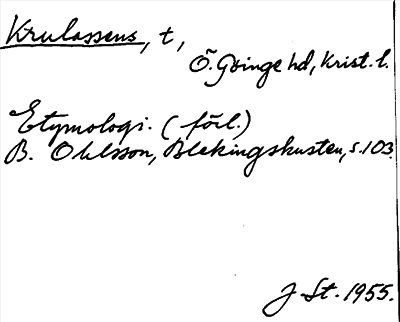 Krulassens, t,
Ö. Göinge hd, Krist. l.
Etymologi. (förl.)
B. Ohlsson, Blekingskusten, s. 103.
J St. 1955.